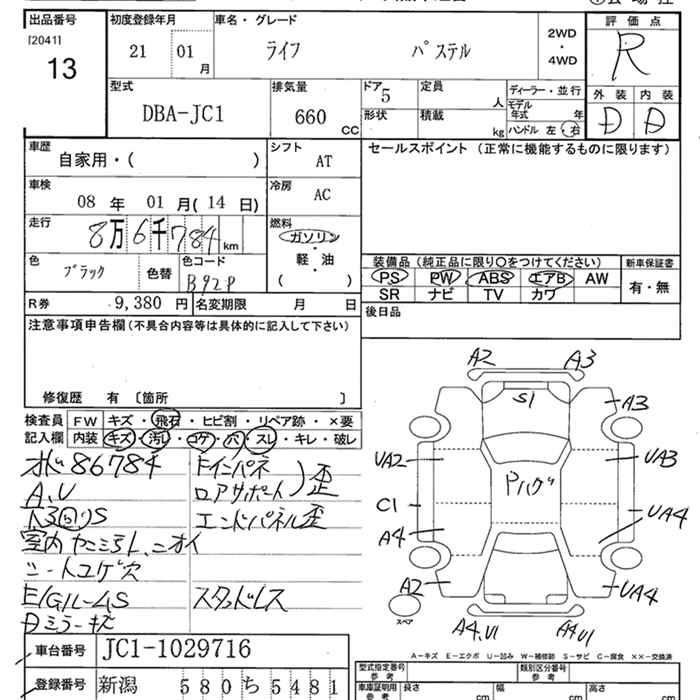 出品番号 初度登録年月 車名・グレード 評価点
[2041] 21 01 月 ライフ パステル 2WD ・ 4WD R
13
型式 排気量 ドア 5 定員 人 ディーラー・並行 外装 内装
DBA-JC1 660 CC 形状 積載 kg モデル年式 年 D D
ハンドル 左・右
車歴 自家用・( ) シフト AT セールスポイント (正常に機能するものに限ります)
車検 08 年 01 月(14 日) 冷房 AC
走行 8万6千784 km 燃料 ガソリン 軽・油 ( )
色 ブラック 色替 色コード B92P
装備品(純正品に限り○をつけてください) 新車保証書
PS PW ABS エアB AW 有・無
SR ナビ TV カワ
R券 9,380 円 名変期限 月 日 後日品
注意事項申告欄(不具合内容等は具体的に記入して下さい)
修復歴 有 〔箇所 〕
検査員 FW キズ・飛石・ヒビ割・リペア跡・×要
記入欄 内装 キズ・汚レ・コゲ・穴・スレ・キレ・破レ
86784 Fインパネ
A.U ロアサポート)歪
エンドパネル歪
室内 ニオイ
シートコゲ穴
スタッドレス
ミラーキズ
A2 A3
S1 A3
UA2 UA3
C1 UA4
A4
A2 UA4
スペア A4.U1 A4U1
A-キズ E-エクボ U-凹み W-補修跡 S-サビ C-腐食 ××-交換済
車台番号 JC1-1029716
型式指定番号 参考 類別区分番号 参考
登録番号 新潟 580 ち 5481
車庫証明用 参考 長さ cm 幅 cm 高さ cm